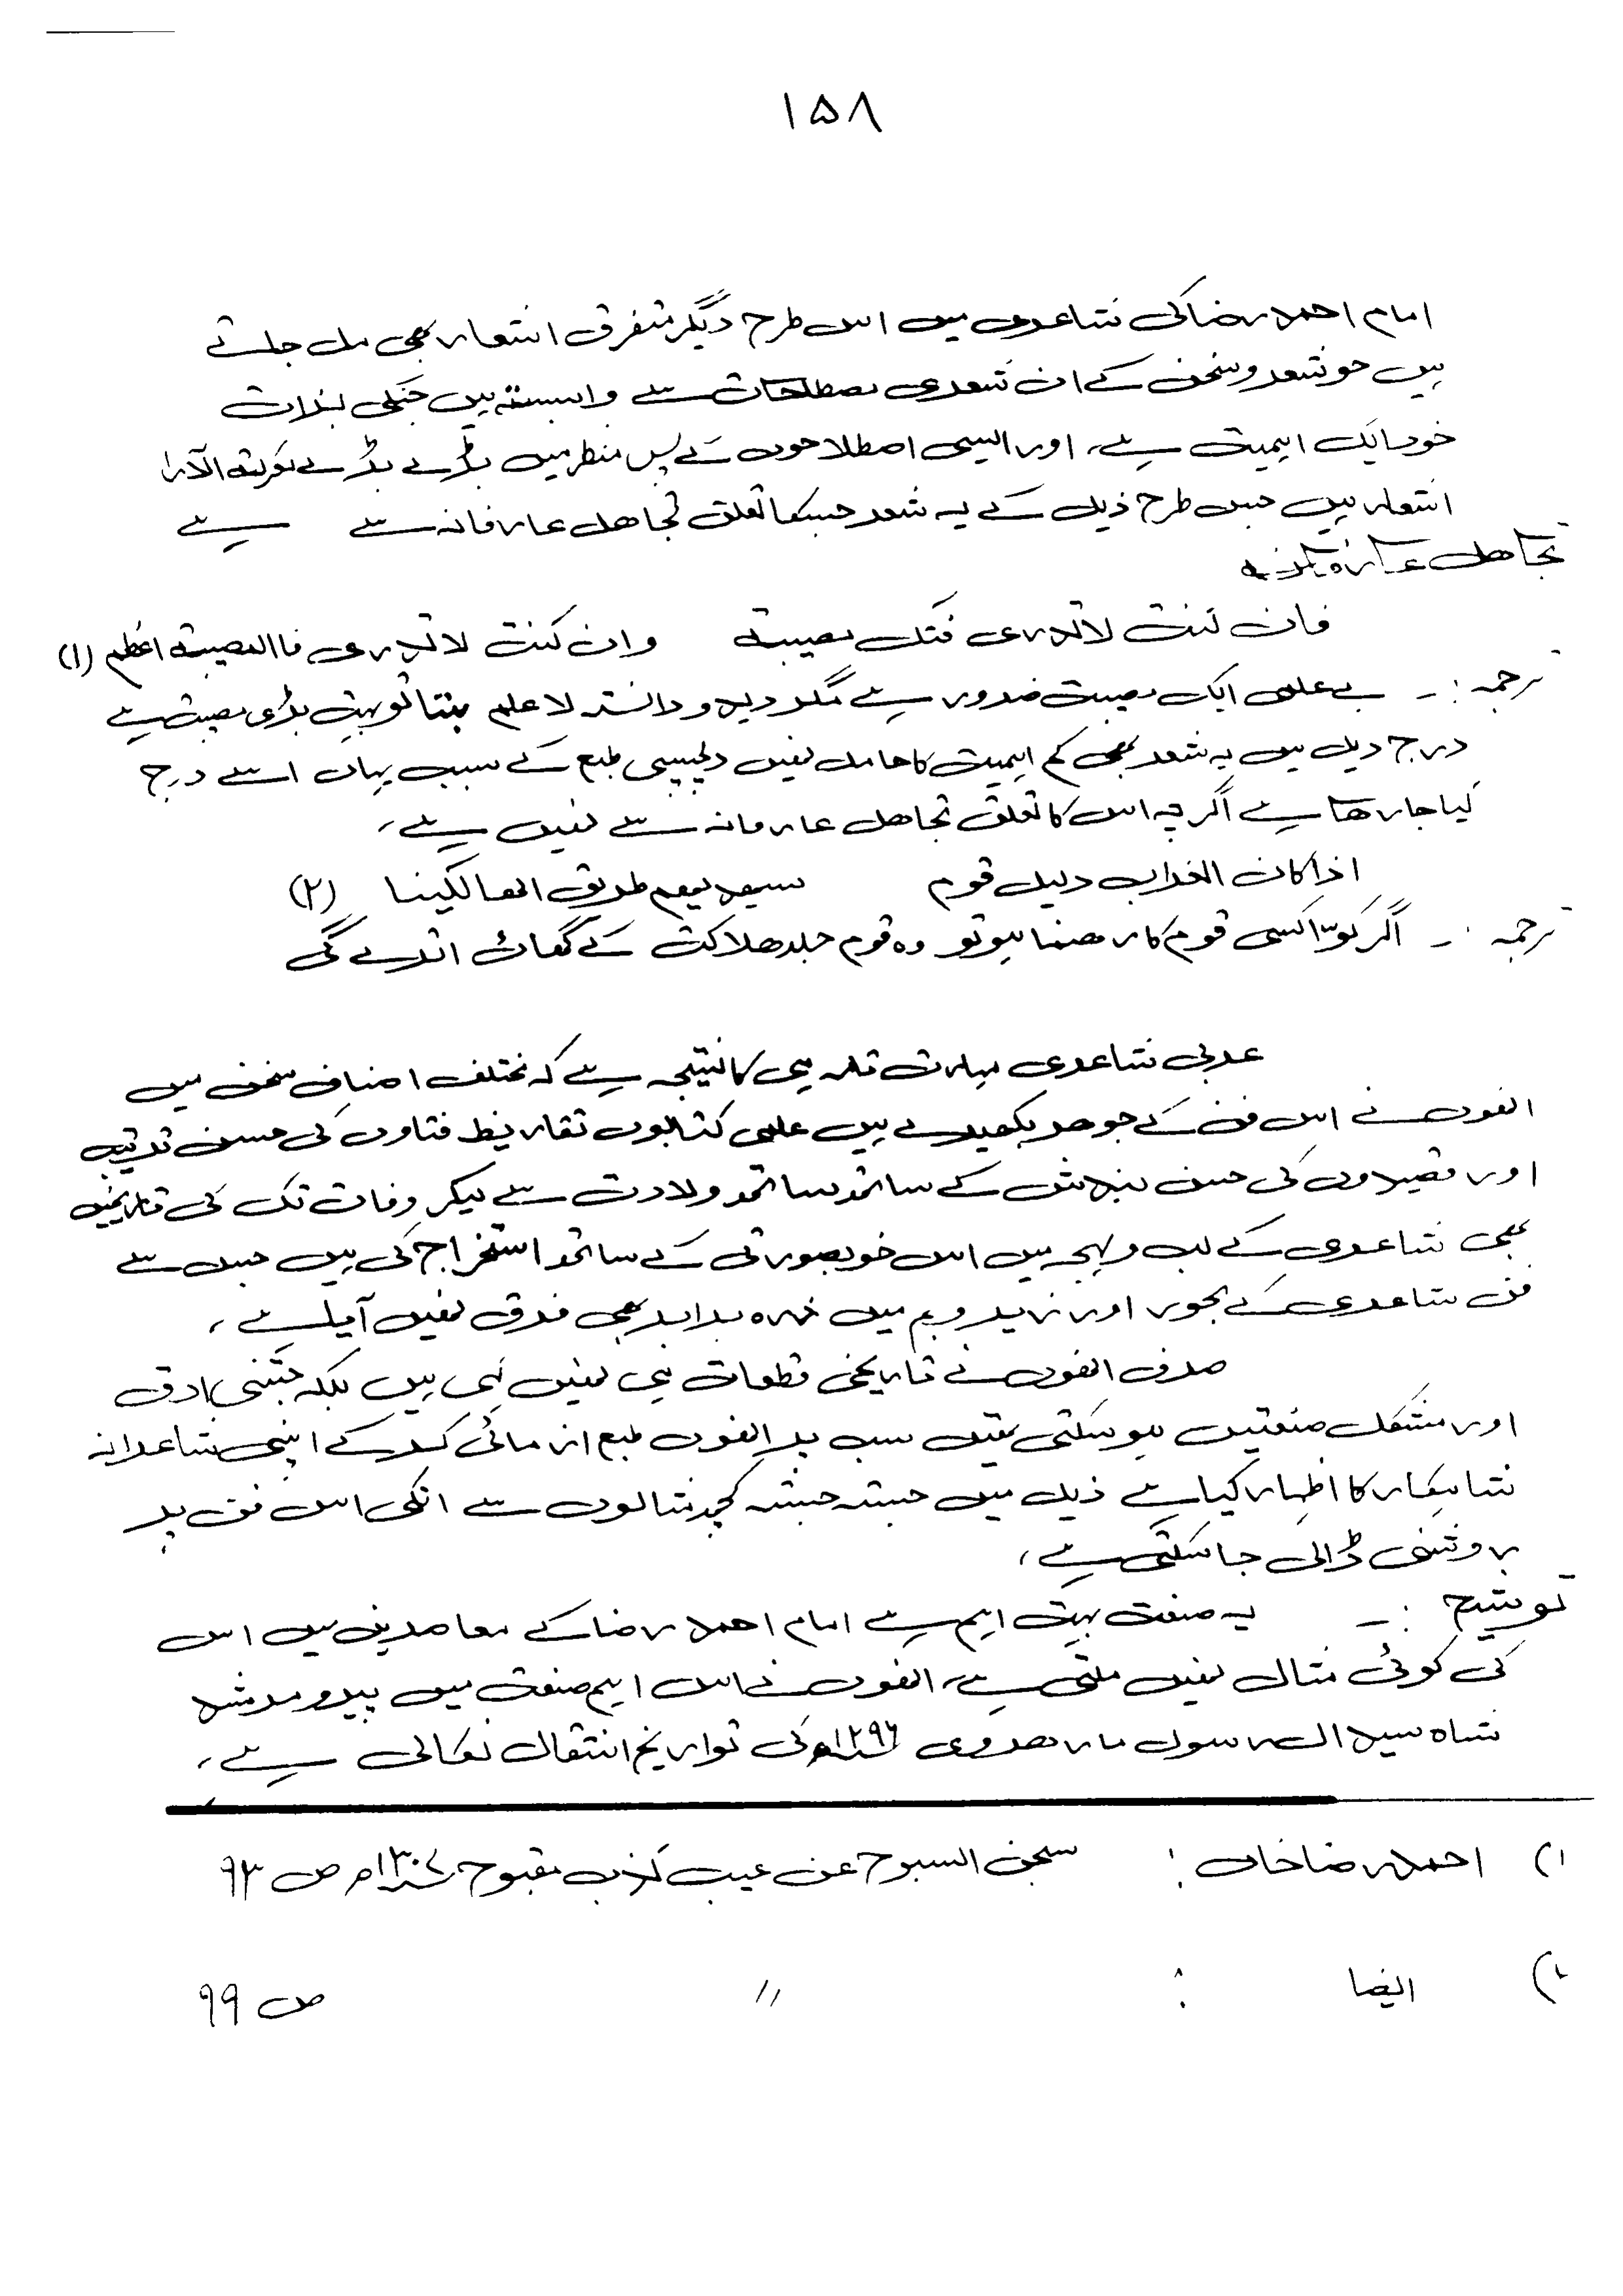 ۱۵۸
امام احمد رضا کی شاعری میں اس طرح دیگر متفرق اشعار بھی مل جاتے
ہیں جو شعر و سخن کے ان شعری مصطلحات سے وابستہ ہیں جنکی بذات
خود ایک اہمیت ہے، اور ایسی اصطلاحوں کے پس منظر میں بڑے بڑے معرکتہ الآرا
اشعار ہیں جس طرح ذیل کے یہ شعر جسکا تعلق تجاھل عارفانہ سے ہے
تجاھل عارفانہ
فان کنت لا تدری فتلک مصیبة وان کنت لا تدری فا المصیبة اعظم (۱)
ترجمہ :۔ بے علمی ایک مصیبت ضرور ہے مگر دیدہ و دانستہ لا علم بنتا تو بہت بڑی مصیبت ہے
درج ذیل میں یہ شعر بھی کم اہمیت کا حامل نہیں دلچسپی طبع کے سبب یہاں اسے درج
کیا جا رھا ہے اگر چہ اس کا تعلق تجاھل عارفانہ سے نہیں ہے،
اذا کان الغراب دلیل قوم سیھدیھم طریق الھالکینا (۲)
ترجمہ :۔ اگر کوّا کسی قوم کا رھنما ہو تو وہ قوم جلد ھلاکت کے گھاٹ اترے گی
عربی شاعری مہارت تامہ ہی کا نتیجہ ہے کہ مختلف اصناف سخن میں
انھوں نے اس فن کے جوھر بکھیرے ہیں علمی کتابوں تقاریظ فتاوں کی حسن ترتیب
اور قصیدوں کی حسن بندش کے ساتھ ساتھ ولادت سے لیکر وفات تک کی تاریخیں
بھی شاعری کے لب و لہجہ میں اس خوبصورتی کے ساتھ استخراج کی ہیں جس سے
فن شاعری کے بحور اور زیر و بم میں ذرہ برابر بھی فرق نہیں آیا ہے،
صرف انھوں نے تاریخی قطعات ہی نہیں کہی ہیں بلکہ جتنی ادق
اور مشکل صنعتیں ہو سکتی تھیں سب پر انھوں طبع آزمائی کرکے اپنی شاعرانہ
شاہکار کا اظہار کیا ہے ذیل میں جستہ جستہ کچھ مثالوں سے انکی اس فن پر
روشنی ڈالی جا سکتی ہے،
توشیح :۔ یہ صنعت بہت اہم ہے امام احمد رضا کے معاصرین میں اس
کی کوئی مثال نہیں ملتی ہے، انھوں نے اس اہم صنعت میں پیر و مرشد
شاہ سید ال رسول مارھروی ۱۲۹۶ھ کی تواریخ انتقال نکالی ہے،
۱) احمد رضا خاں : سبحٰن السبوح عن عیب کذب مقبوح ۱۳۰۷ھ ص ۹۳
۲) ایضا : // ص ۹۹